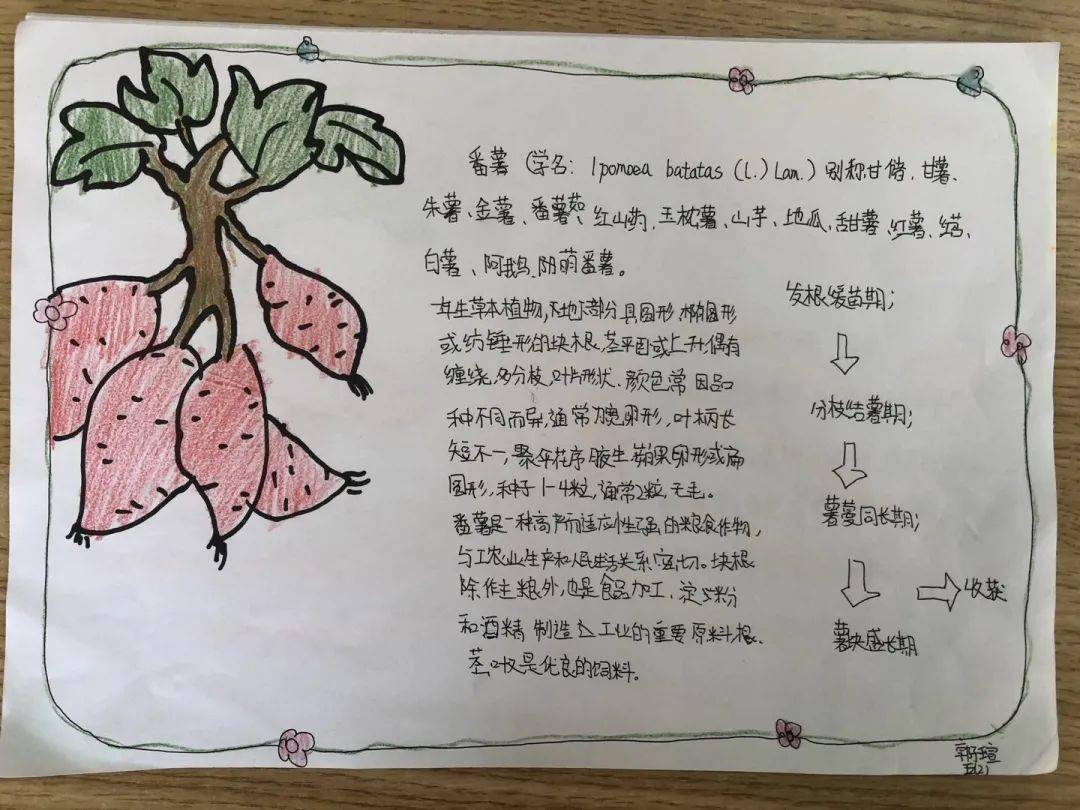 番薯(学名: Ipomoea batatas (L.) Lam.) 别称甘储、甘薯、
朱薯、金薯、番薯茹、红山药、玉枕薯、山芋、地瓜、甜薯、红薯、红苕、
白薯、阿鹅、阴萌番薯。
年生草本植物,地下部分具圆形、椭圆形
或纺锤形的块根,茎平卧或上升偶有
缠绕,多分枝,叶片形状、颜色常因品
种不同而异,通常为宽卵形,叶柄长
短不一,聚伞花序腋生蒴果卵形或扁
圆形,种子1-4粒,通常2粒,无毛。
番薯是一种高产而适应性强的粮食作物,
与工农业生产和人民生活关系密切。块根
除作主粮外,也是食品加工、淀粉
和酒精制造工业的重要原料,根、
茎、叶又是优良的饲料。
发根缓苗期;
分枝结薯期;
薯蔓同长期;
薯块盛长期
收获
五(2)